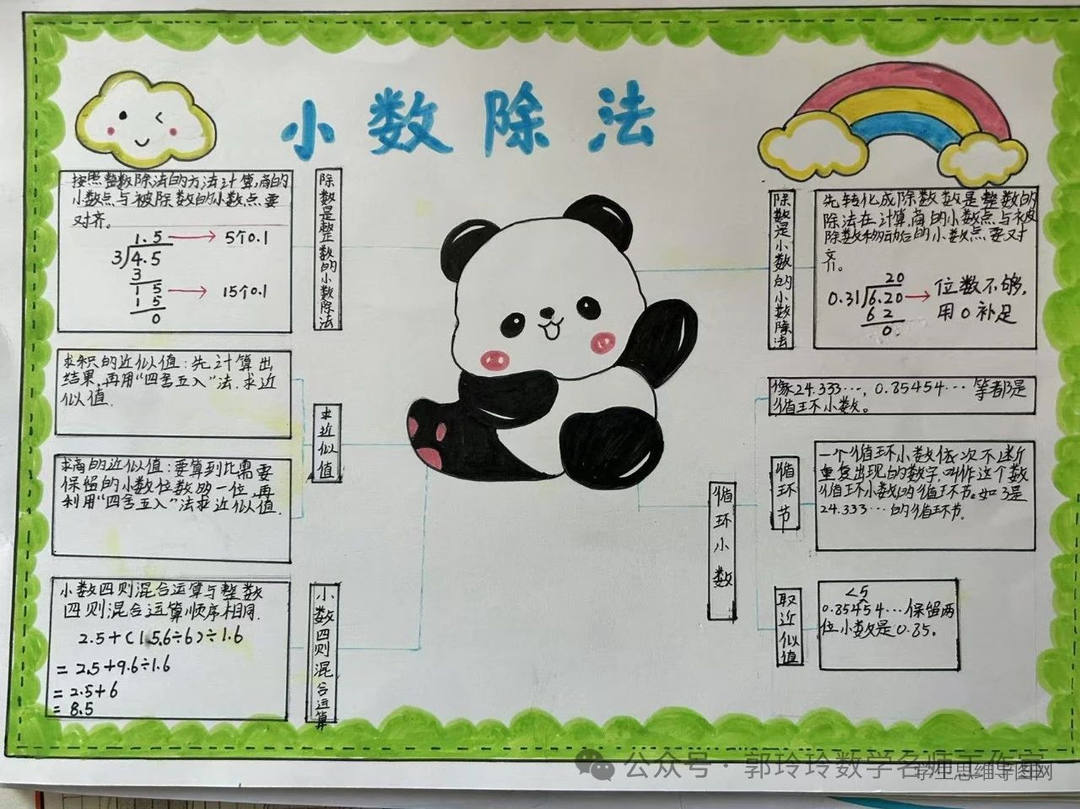 小数除法
按照整数除法的方法计算,商的
小数点与被除数的小数点要
对齐。
1.5 → 5个0.1
3)4.5
3
1 5 → 15个0.1
1 5
0
除数是整数的小数除法
求积的近似值:先计算出
结果,再用“四舍五入”法.求近
似值.
求商的近似值:要算到比需要
保留的小数位数多一位,再
利用“四舍五入”法求近似值.
求近似值
小数四则混合运算与整数
四则混合运算顺序相同.
2.5+(15.6÷6)÷1.6
=2.5+9.6÷1.6
=2.5+6
=8.5
小数四则混合运算
除数是小数的小数除法
先转化成除数数是整数的
除法在计算,商的小数点与被
除数移动后的小数点要对
齐。
20
0.31)6.20 → 位数不够,
用0补足
6 2
0
像24.333…,0.85454…等都是
循环小数。
循环小数
循环节
一个循环小数依次不断
重复出现的数字,叫作这个数
循环小数的循环节。如3是
24.333…的循环节.
取近似值
<5
0.85454…保留两
位小数是0.85。
公众号·郭玲玲数学名师工作室
思维导图网